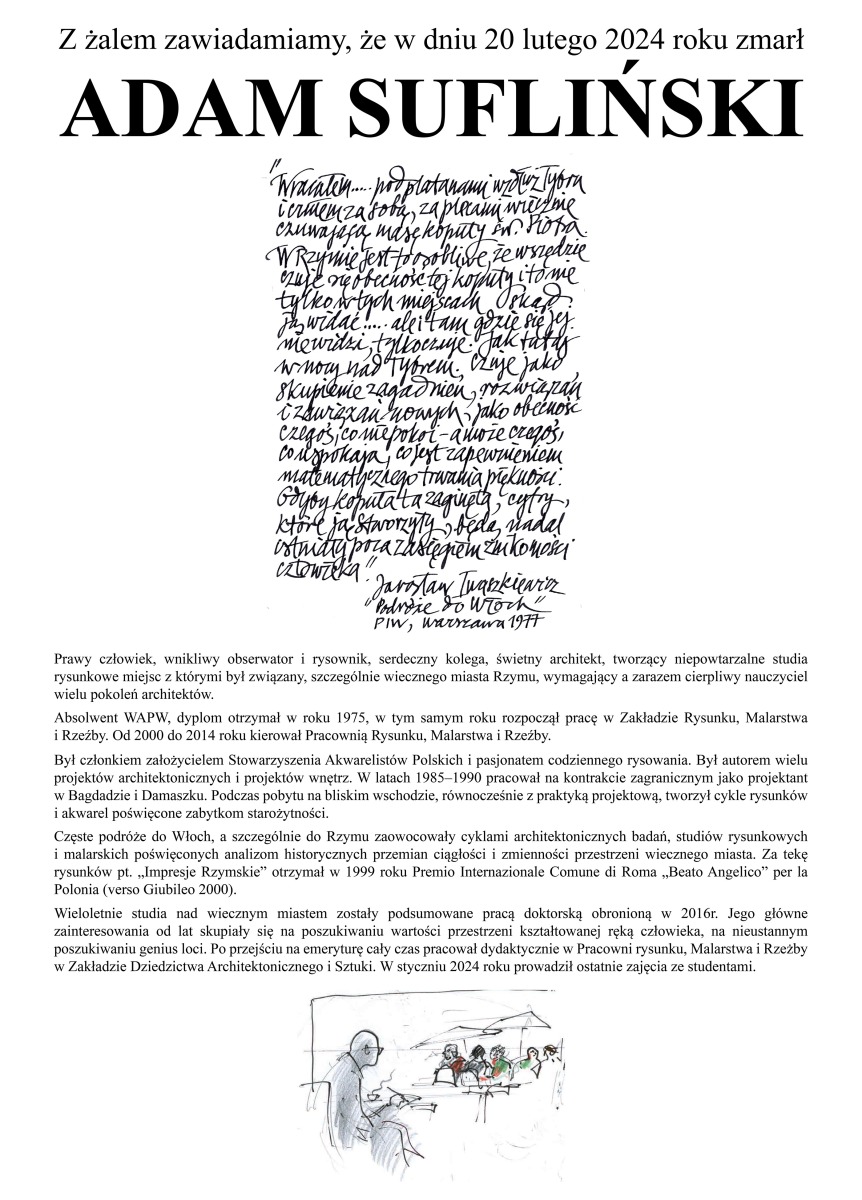 Z żalem zawiadamiamy, że w dniu 20 lutego 2024 roku zmarł
ADAM SUFLIŃSKI
"Wracałem.... pod platanami wzdłuż Tybru
i czułem za sobą, za plecami wiecznie
czuwającą masę kopuły św. Piotra.
W Rzymie jest to osobliwe, że wszędzie
czuje się obecność tej kopuły i to nie
tylko w tych miejscach skąd
ją widać..... ale i tam gdzie się jej
nie widzi, tylko czuje. Jak tutaj
w nocy nad Tybrem. Czuje jako
skupienie zagadnień, rozwiązań
i zawiązań nowych, jako obecność
czegoś, co niepokoi - a może czegoś,
co uspokaja, co jest zapewnieniem
matematycznego trwania piękności.
Gdyby kopuła ta zaginęła, cyfry,
które ją stworzyły, będą nadal
istniały poza zasięgiem znikomości
człowieka"
Jarosław Iwaszkiewicz
"Podróże do Włoch"
PIW, Warszawa 1977
Prawy człowiek, wnikliwy obserwator i rysownik, serdeczny kolega, świetny architekt, tworzący niepowtarzalne studia
rysunkowe miejsc z którymi był związany, szczególnie wiecznego miasta Rzymu, wymagający a zarazem cierpliwy nauczyciel
wielu pokoleń architektów.
Absolwent WAPW, dyplom otrzymał w roku 1975, w tym samym roku rozpoczął pracę w Zakładzie Rysunku, Malarstwa
i Rzeźby. Od 2000 do 2014 roku kierował Pracownią Rysunku, Malarstwa i Rzeźby.
Był członkiem założycielem Stowarzyszenia Akwarelistów Polskich i pasjonatem codziennego rysowania. Był autorem wielu
projektów architektonicznych i projektów wnętrz. W latach 1985–1990 pracował na kontrakcie zagranicznym jako projektant
w Bagdadzie i Damaszku. Podczas pobytu na bliskim wschodzie, równocześnie z praktyką projektową, tworzył cykle rysunków
i akwarel poświęcone zabytkom starożytności.
Częste podróże do Włoch, a szczególnie do Rzymu zaowocowały cyklami architektonicznych badań, studiów rysunkowych
i malarskich poświęconych analizom historycznych przemian ciągłości i zmienności przestrzeni wiecznego miasta. Za tekę
rysunków pt. „Impresje Rzymskie” otrzymał w 1999 roku Premio Internazionale Comune di Roma „Beato Angelico” per la
Polonia (verso Giubileo 2000).
Wieloletnie studia nad wiecznym miastem zostały podsumowane pracą doktorską obronioną w 2016r. Jego główne
zainteresowania od lat skupiały się na poszukiwaniu wartości przestrzeni kształtowanej ręką człowieka, na nieustannym
poszukiwaniu genius loci. Po przejściu na emeryturę cały czas pracował dydaktycznie w Pracowni rysunku, Malarstwa i Rzeźby
w Zakładzie Dziedzictwa Architektonicznego i Sztuki. W styczniu 2024 roku prowadził ostatnie zajęcia ze studentami.